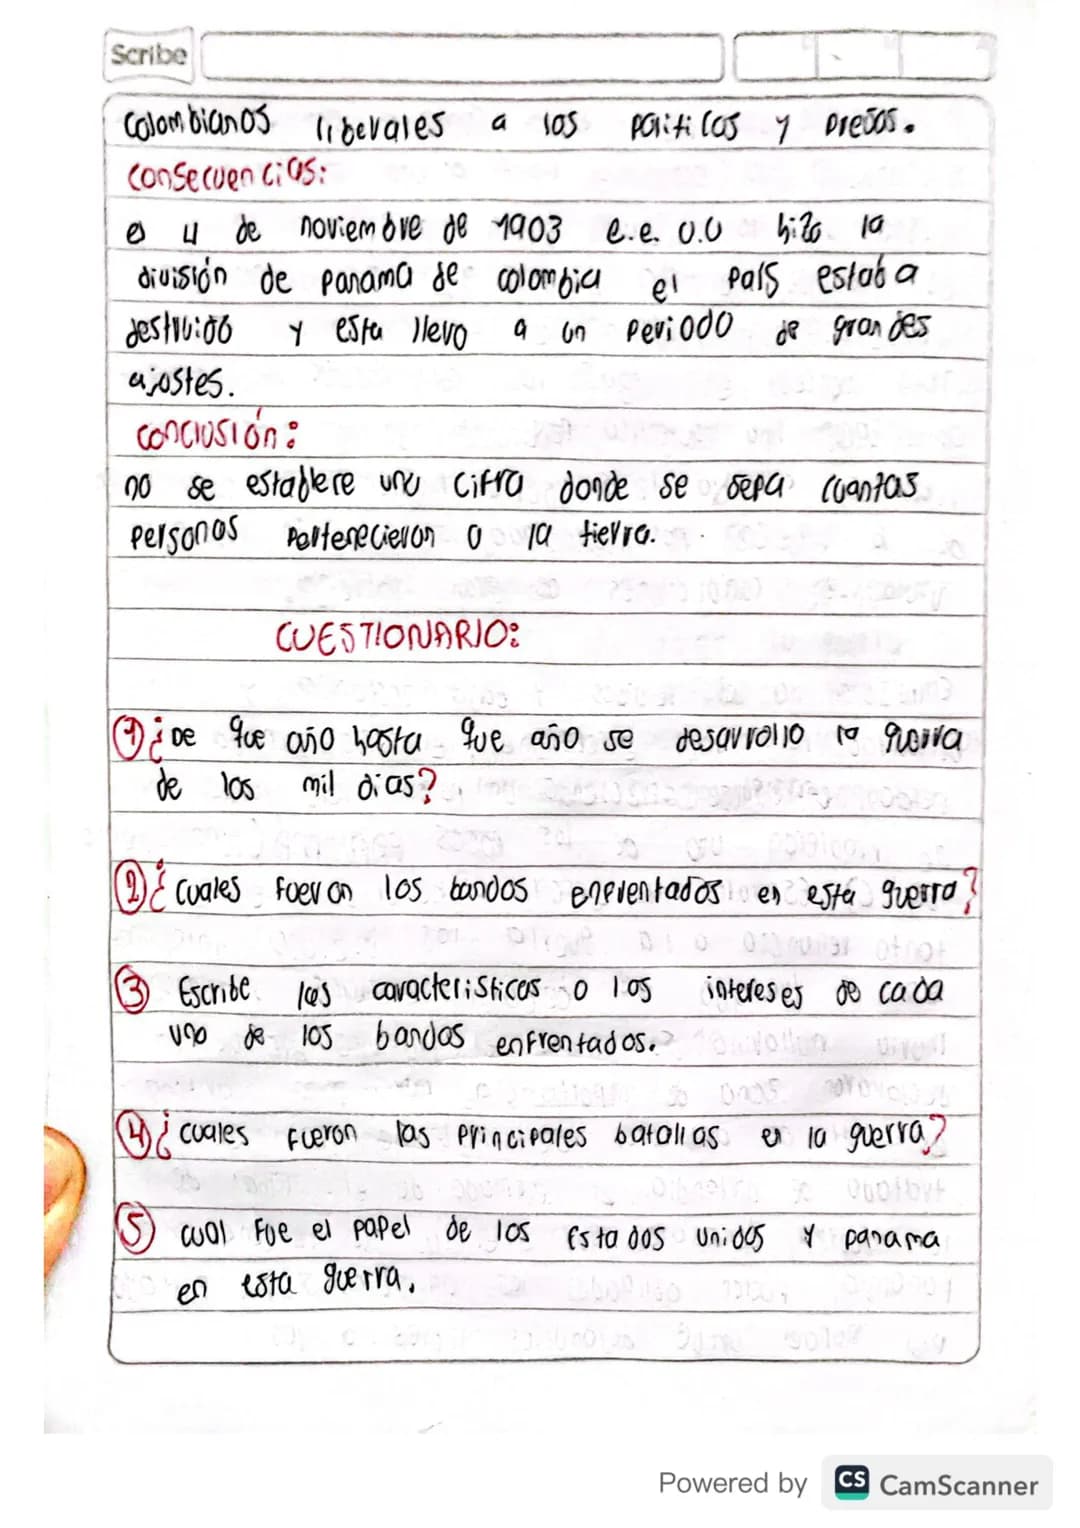 Scribe
colombianos liberales a los politicos y presos.
consecuencias:
es 4 de noviembre de 1903 e.e. u.u hizo la
división de panama de colombia el país estaba
destruido y esta llevo a un periodo de grandes
ajostes.
conclusión:
no se establere una cifra donde se sepa cuantas
personas pertenecieron a la tierra.
CUESTIONARIO:
1 ¿De que año hasta que año se desarrollo la guerra
de los mil dias?
2 ¿cuales fueron los bandos enfrentados en esta guerra?
3 Escribe las caracteristicas o los intereses de cada
uno de los bandos enfrentados.
4 ¿cuales fueron las principales batallas en la guerra?
5 cual fue el papel de los Estados unidos y panama
en esta guerra.
Powered by CS CamScanner